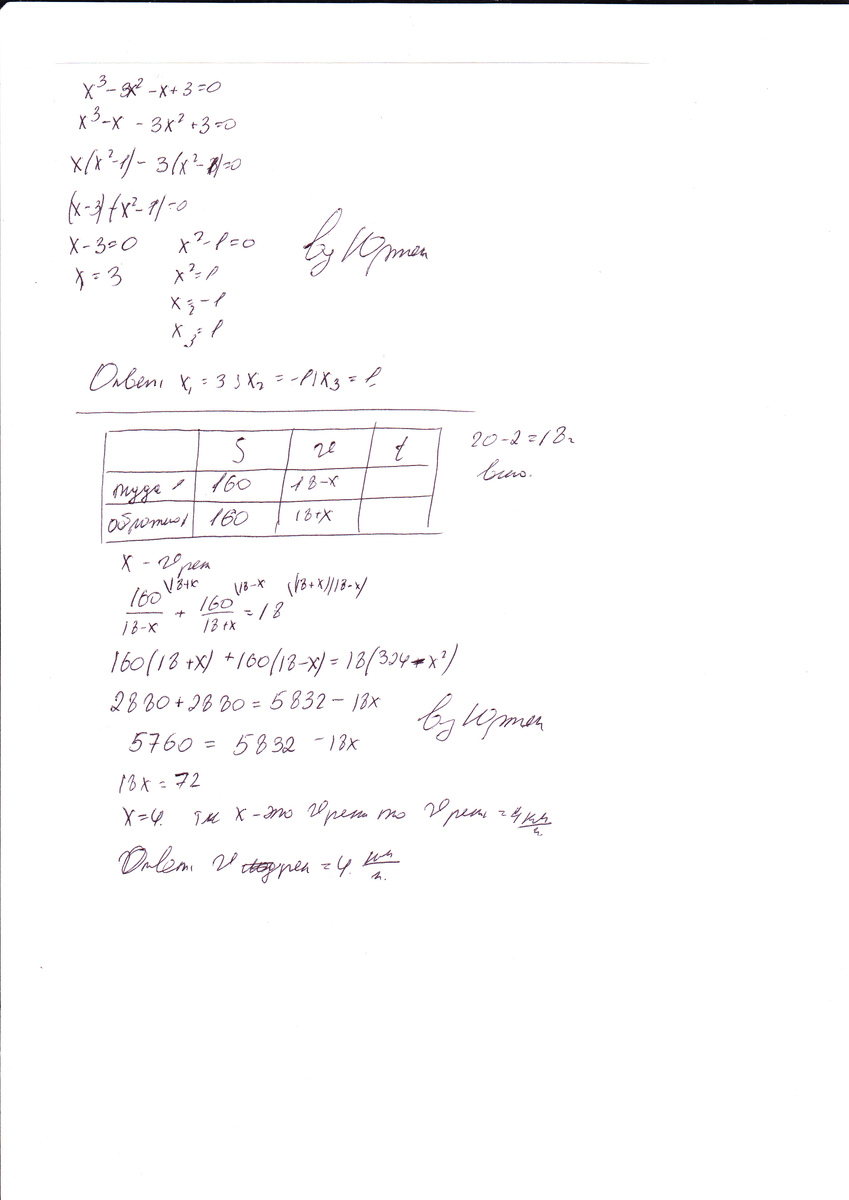 x³-3x²-x+3=0
x³-x - 3x²+3=0
x(x²-1)- 3(x²-1)=0
(x-3)(x²-1)=0
x-3=0 x²-1=0
x₁=3 x²=1
x₂=-1
x₃=1
by Юртен
Ответ: x₁=3; x₂=-1; x₃=1.
S v t
туда 160 18-x
обратно 160 18+x
20-2=18ч
всего.
x - v рек
160/(18-x) \18+x + 160/(18+x) \18-x = 18 \(18+x)(18-x)
160(18+x)+160(18-x)=18(324-x²)
2880+2880=5832-18x
by Юртен
5760 = 5832-18x
18x=72
x=4. тк x-это v реки то v реки=4 км/ч.
Ответ: v рек=4. км/ч.